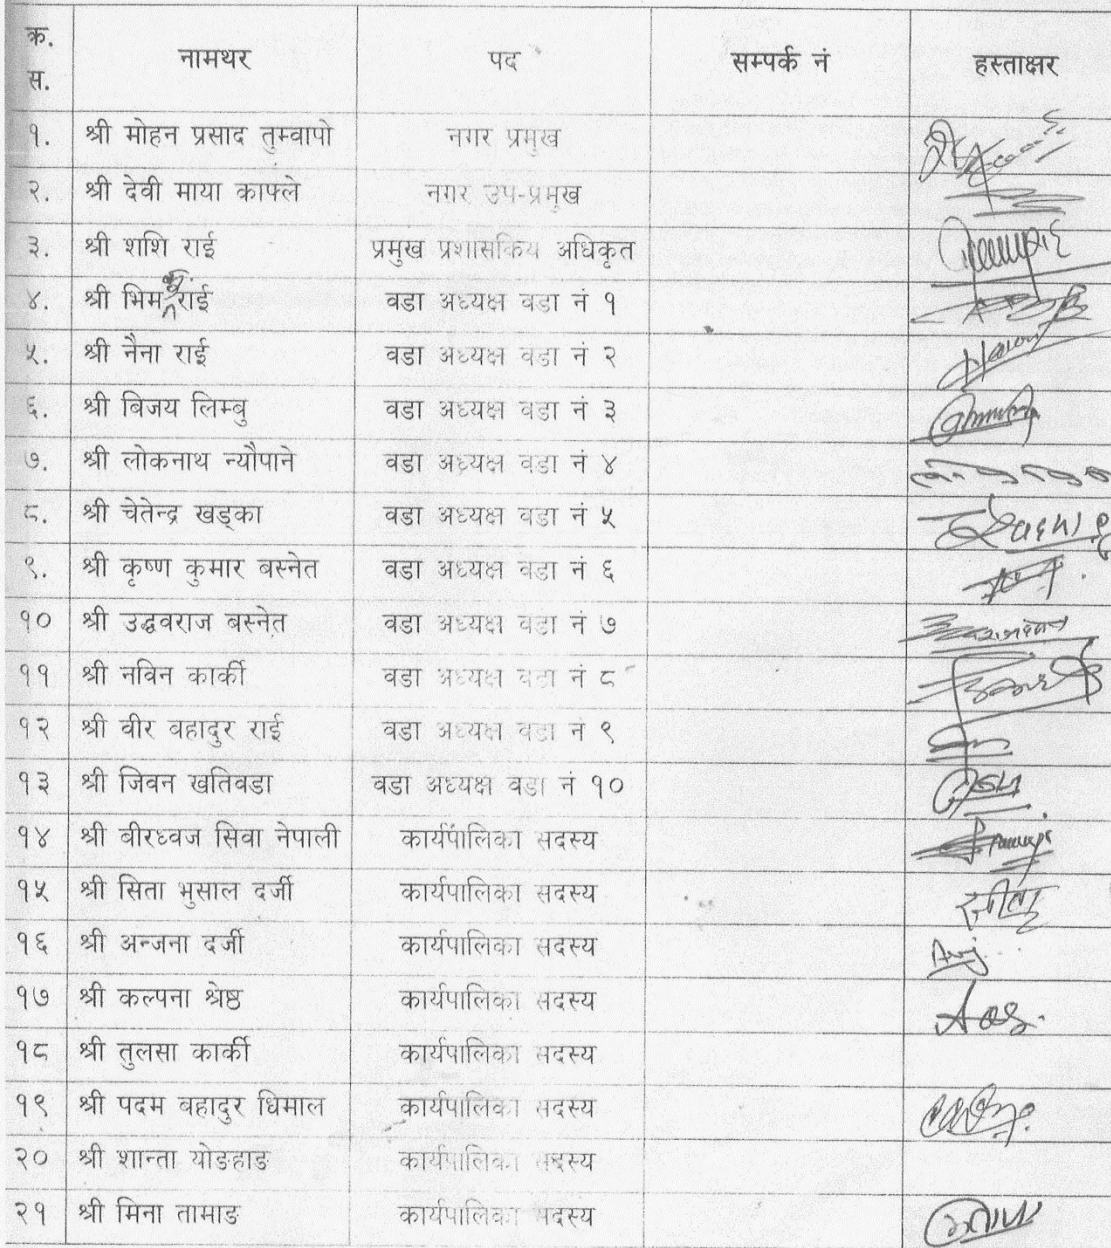 क्र.स. नामथर पद सम्पर्क नं हस्ताक्षर
१. श्री मोहन प्रसाद तुम्वापो नगर प्रमुख
२. श्री देवी माया काफ्ले नगर उप-प्रमुख
३. श्री शशि राई प्रमुख प्रशासकिय अधिकृत
४. श्री भिम राई वडा अध्यक्ष वडा नं १
५. श्री नैना राई वडा अध्यक्ष वडा नं २
६. श्री बिजय लिम्बु वडा अध्यक्ष वडा नं ३
७. श्री लोकनाथ न्यौपाने वडा अध्यक्ष वडा नं ४
८. श्री चेतेन्द्र खड्का वडा अध्यक्ष वडा नं ५
९. श्री कृष्ण कुमार बस्नेत वडा अध्यक्ष वडा नं ६
१० श्री उद्धवराज बस्नेत वडा अध्यक्ष वडा नं ७
११ श्री नविन कार्की वडा अध्यक्ष वडा नं ८
१२ श्री वीर वहादुर राई वडा अध्यक्ष वडा नं ९
१३ श्री जिवन खतिवडा वडा अध्यक्ष वडा नं १०
१४ श्री बीरध्वज सिवा नेपाली कार्यपालिका सदस्य
१५ श्री सिता भुसाल दर्जी कार्यपालिका सदस्य
१६ श्री अन्जना दर्जी कार्यपालिका सदस्य
१७ श्री कल्पना श्रेष्ठ कार्यपालिका सदस्य
१८ श्री तुलसा कार्की कार्यपालिका सदस्य
१९ श्री पदम वहादुर धिमाल कार्यपालिका सदस्य
२० श्री शान्ता योङहाङ कार्यपालिका सदस्य
२१ श्री मिना तामाङ कार्यपालिका सदस्य